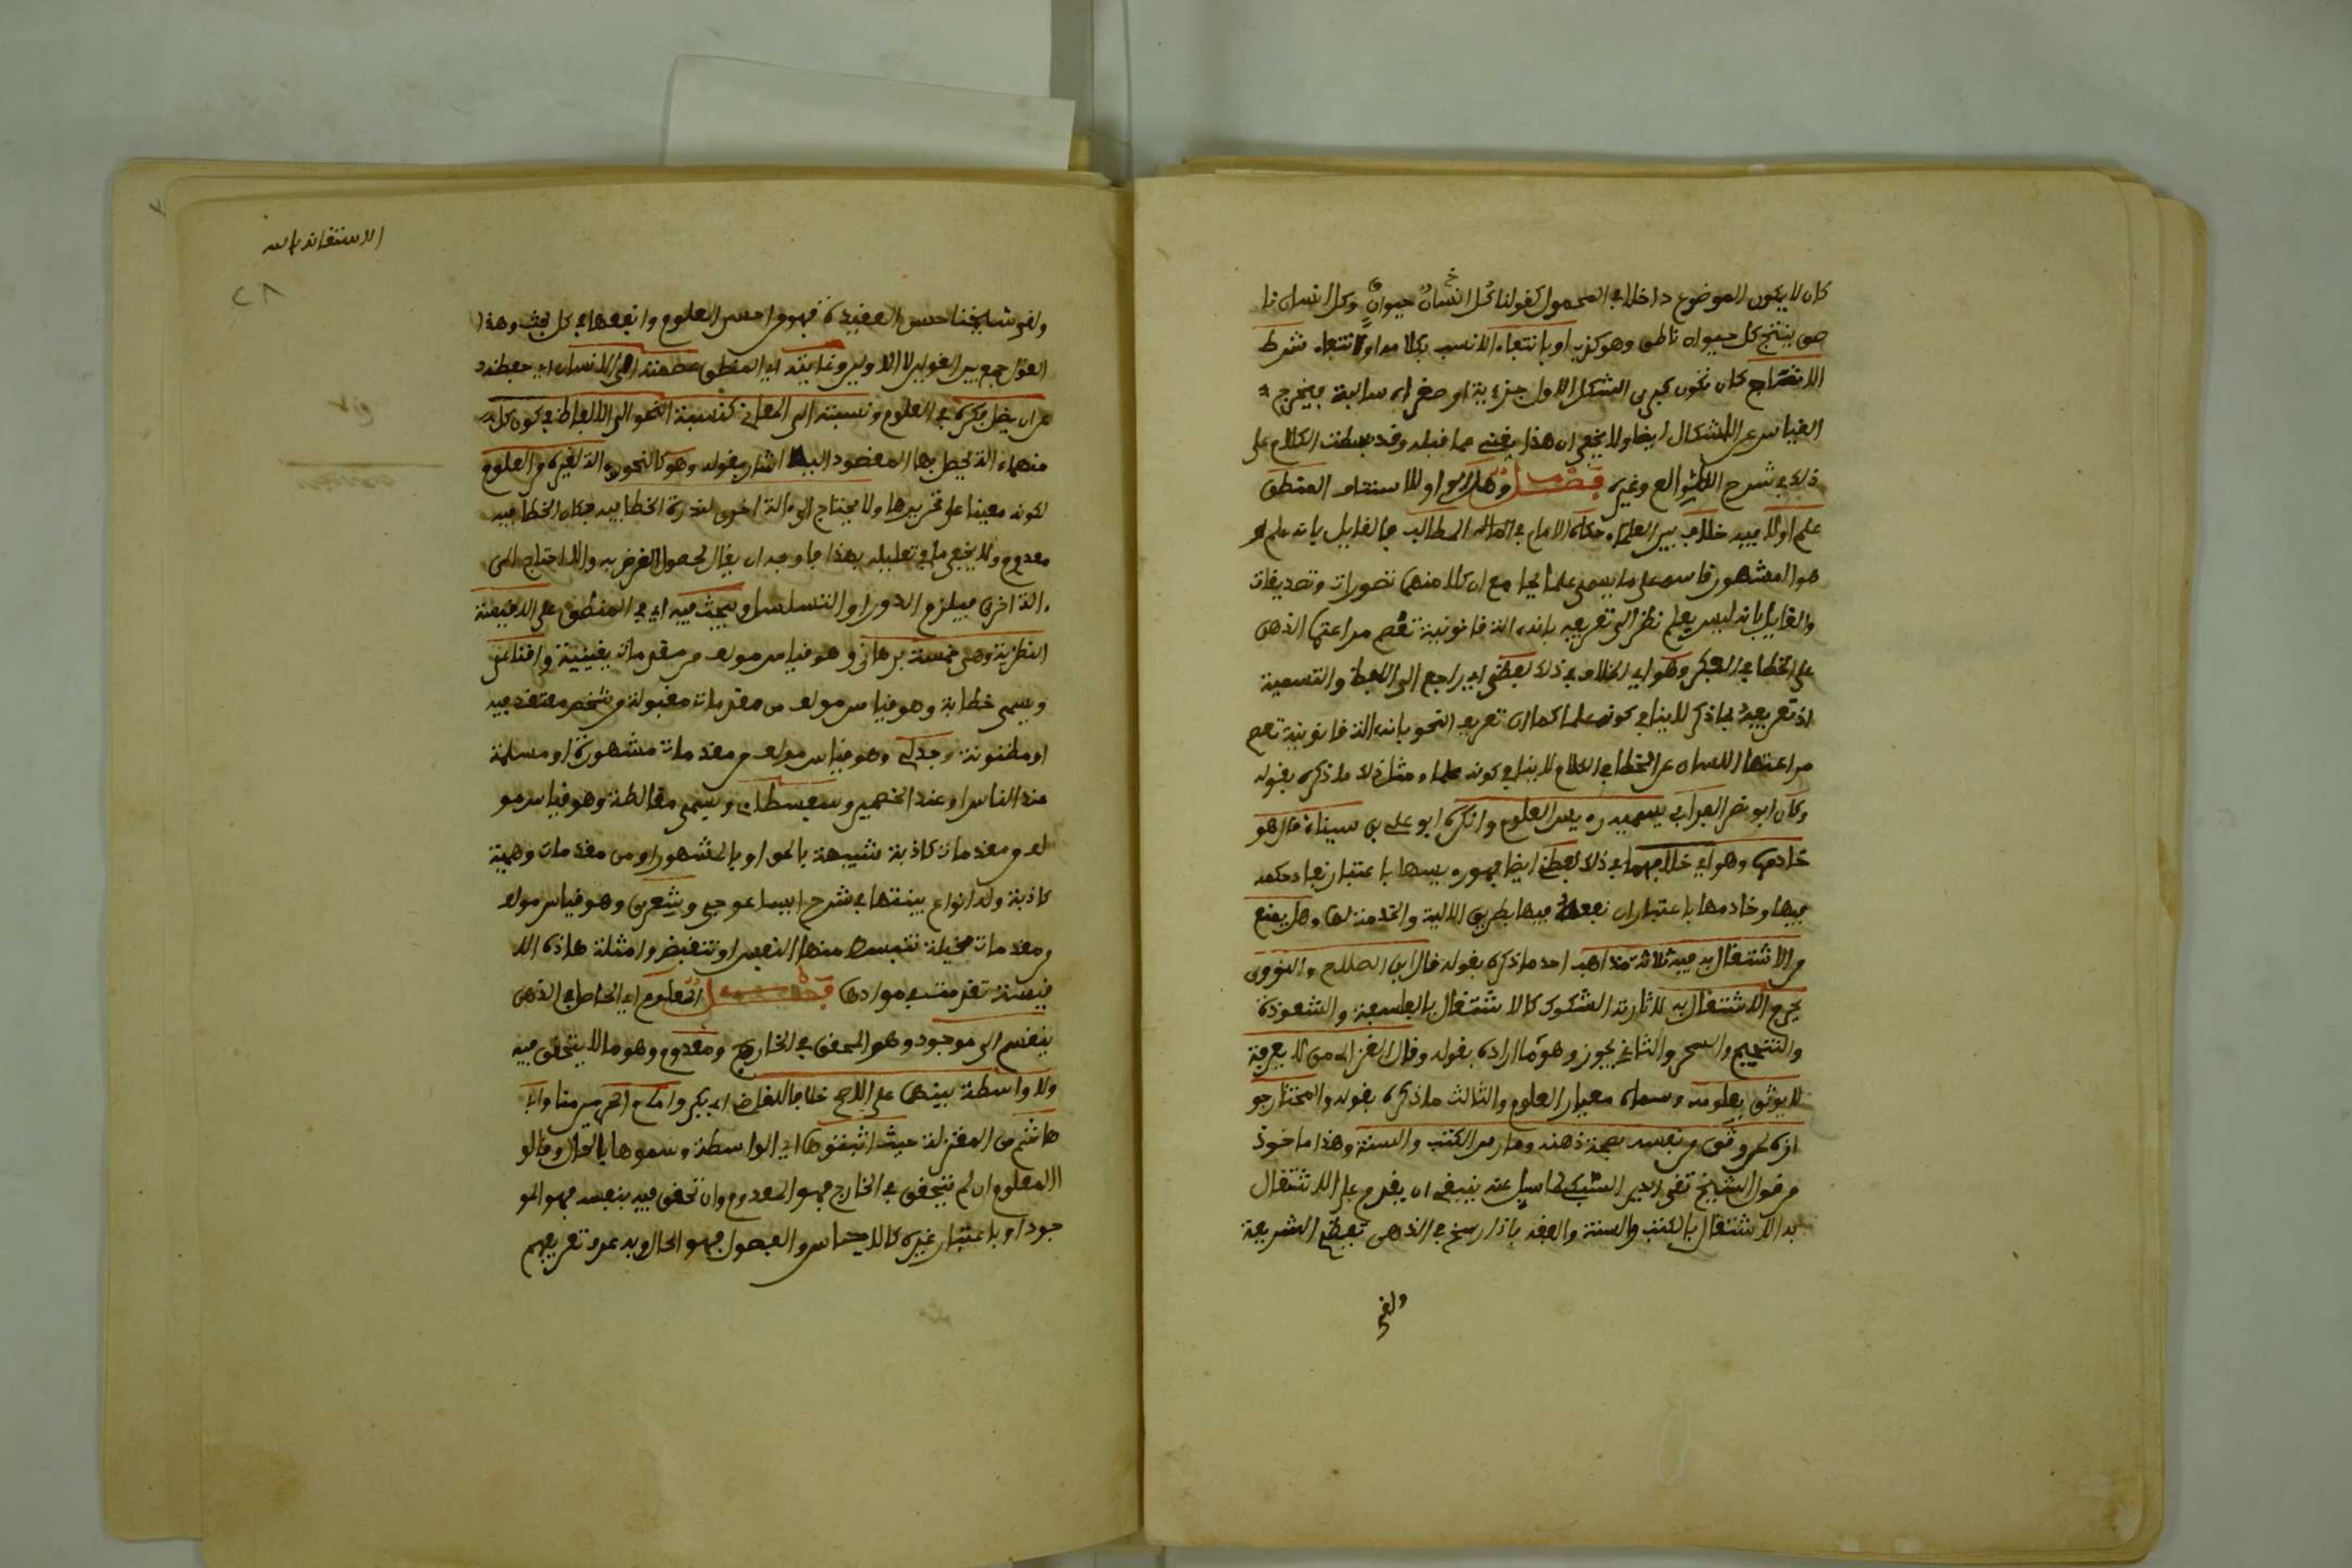 كان لا يكون الموضوع داخلا في المحمول كقولنا كل انسان حيوان وكل انسان نا
طق ينتج كل حيوان ناطق وهو كذب او بانتفاء الانسب بكلامه او لانتفاء شرط
الانتاج كان تكون كبرى الشكل الاول جزءية او صغراه سالبة فيخرج
القياس عن الاشكال ايضا ولا يخفى ان هذا يغني عما قبله وقد بسطت الكلام على
ذلك في شرح الطوالع وغيره فصل اولا المنطق
علم او لا فيه خلاف بين العلماء حكاه الامام في المطالب فالقايل بانه علم و
هو المشهور قاسه على ما يسمى علما بجامع ان كلا منهما تصورات وتصديقات
والقايل بانه ليس بعلم نظر الى تعريفه بانه ءالة قانونية تعصم مراعتها الذهن
على الخطا في الفكر وهو اي الخلاف في ذلك لفظي اي راجع الى اللفظ والتسمية
اذ تعريفه بما ذكر لا ينافي كونه علما كما ان تعريف النحو بانه ءالة قانونية تعصم
مراعتها اللسان عن الخطا في الكلام لا ينافي كونه علما ومثل ذلك ما ذكره بقوله
وكان ابو نصر الفرابي يسميه رءيس العلوم وانكره ابو علي بن سيناء قال هو
خادمها وهو اي خلافهما في ذلك لفظي ايضا فهو رءيسها باعتبار نفاد حكمه
فيها وخادمها باعتبار ان نفعه فيها بطريق الالية والخدمة لها وهل يمنع
من الاشتغال به فيه ثلاثة مذاهب احدها ذكره بقوله قال ابن الصلاح والنووي
يحرم الاشتغال به لاثارته الشكوك كالاشتغال بالفلسفة والشعوذة
والتنجيم والسحر والثاني يجوز وهو ما اراده بقوله وقال الغزالي من لا يعرفه
لا يوثق بعلومه وسماه معيار العلوم والثالث ما ذكره بقوله والمختار جو
ازه لمن وثق من نفسه بصحة ذهنه ومارس الكتب والسنة وهذا ماخوذ
من قول الشيخ تقي الدين السبكي لما سيل عنه ينبغي ان يقدم على الاشتغال
به الاشتغال بالكتب والسنة والفقه فاذا رسخ في الذهن تعظيم الشريعة
ولقي
الاستغاثة بالله
٢٨
ولقي شيخنا حسن العقيدة فهو من احسن العلوم وانفعها في كل بحث وهذا
القول جمع بين القولين الاولين وغايته اي المنطق عصمة الانسان اي حفظه
عن ان يضل فكره في العلوم ونسبته الى المعاني كنسبة النحو الى الالفاظ في كون كل
منهما ءالة يحصل بها المقصود اشار بقوله وهو كالنحو ءالة لغيره من العلوم
لكونه معينا على تحريرها ولا يحتاج الى ءالة اخرى لندرة الخطا فيه فكان الخطا فيه
معدوم ولا يخفى ما في تعليله بهذا فاوجه ان يقال لحصول الغرض به والا لاحتاج الى
ءالة اخرى فيلزم الدور او التسلسل ويبحث فيه اي في المنطق على الاقيسة
النظرية وهي خمسة برهاني وهو قياس مولف من مقدمات يقينية واقناعي
ويسمى خطابة وهو قياس مولف من مقدمات مقبولة من شخص معتقد فيه
او مظنونة وجدلي وهو قياس مولف من مقدمات مشهورة او مسلمة
عند الناس او عند الخصمين وسفسطاي ويسمى مغالطة وهو قياس مو
لف من مقدمات كاذبة شبيهة بالحق او بالمشهور او من مقدمات وهمية
كاذبة وله انواع بينتها في شرح ايساغوجي وشعري وهو قياس مولف
من مقدمات مخيلة تنبسط منها النفس او تنقبض وامثلة هاذه الا
قيسة تقدمت في موادها فصل المعلوم اي الحاصل في الذهن
ينقسم الى موجود وهو المحقق في الخارج ومعدوم وهو ما لا يتحقق فيه
ولا واسطة بينهما على الاصح خلافا للقاضي ابي بكر وامام الحرمين منا وابا
هاشم من المعتزلة حيث اثبتوها اي الواسطة وسموها بالحال وقالو
ا المعلوم ان لم يتحقق في الخارج فهو المعدوم وان تحقق فيه بنفسه فهو المو
جود او باعتبار غيره كالاجناس والفصول فهو الحال وبه عرف تعريفهم